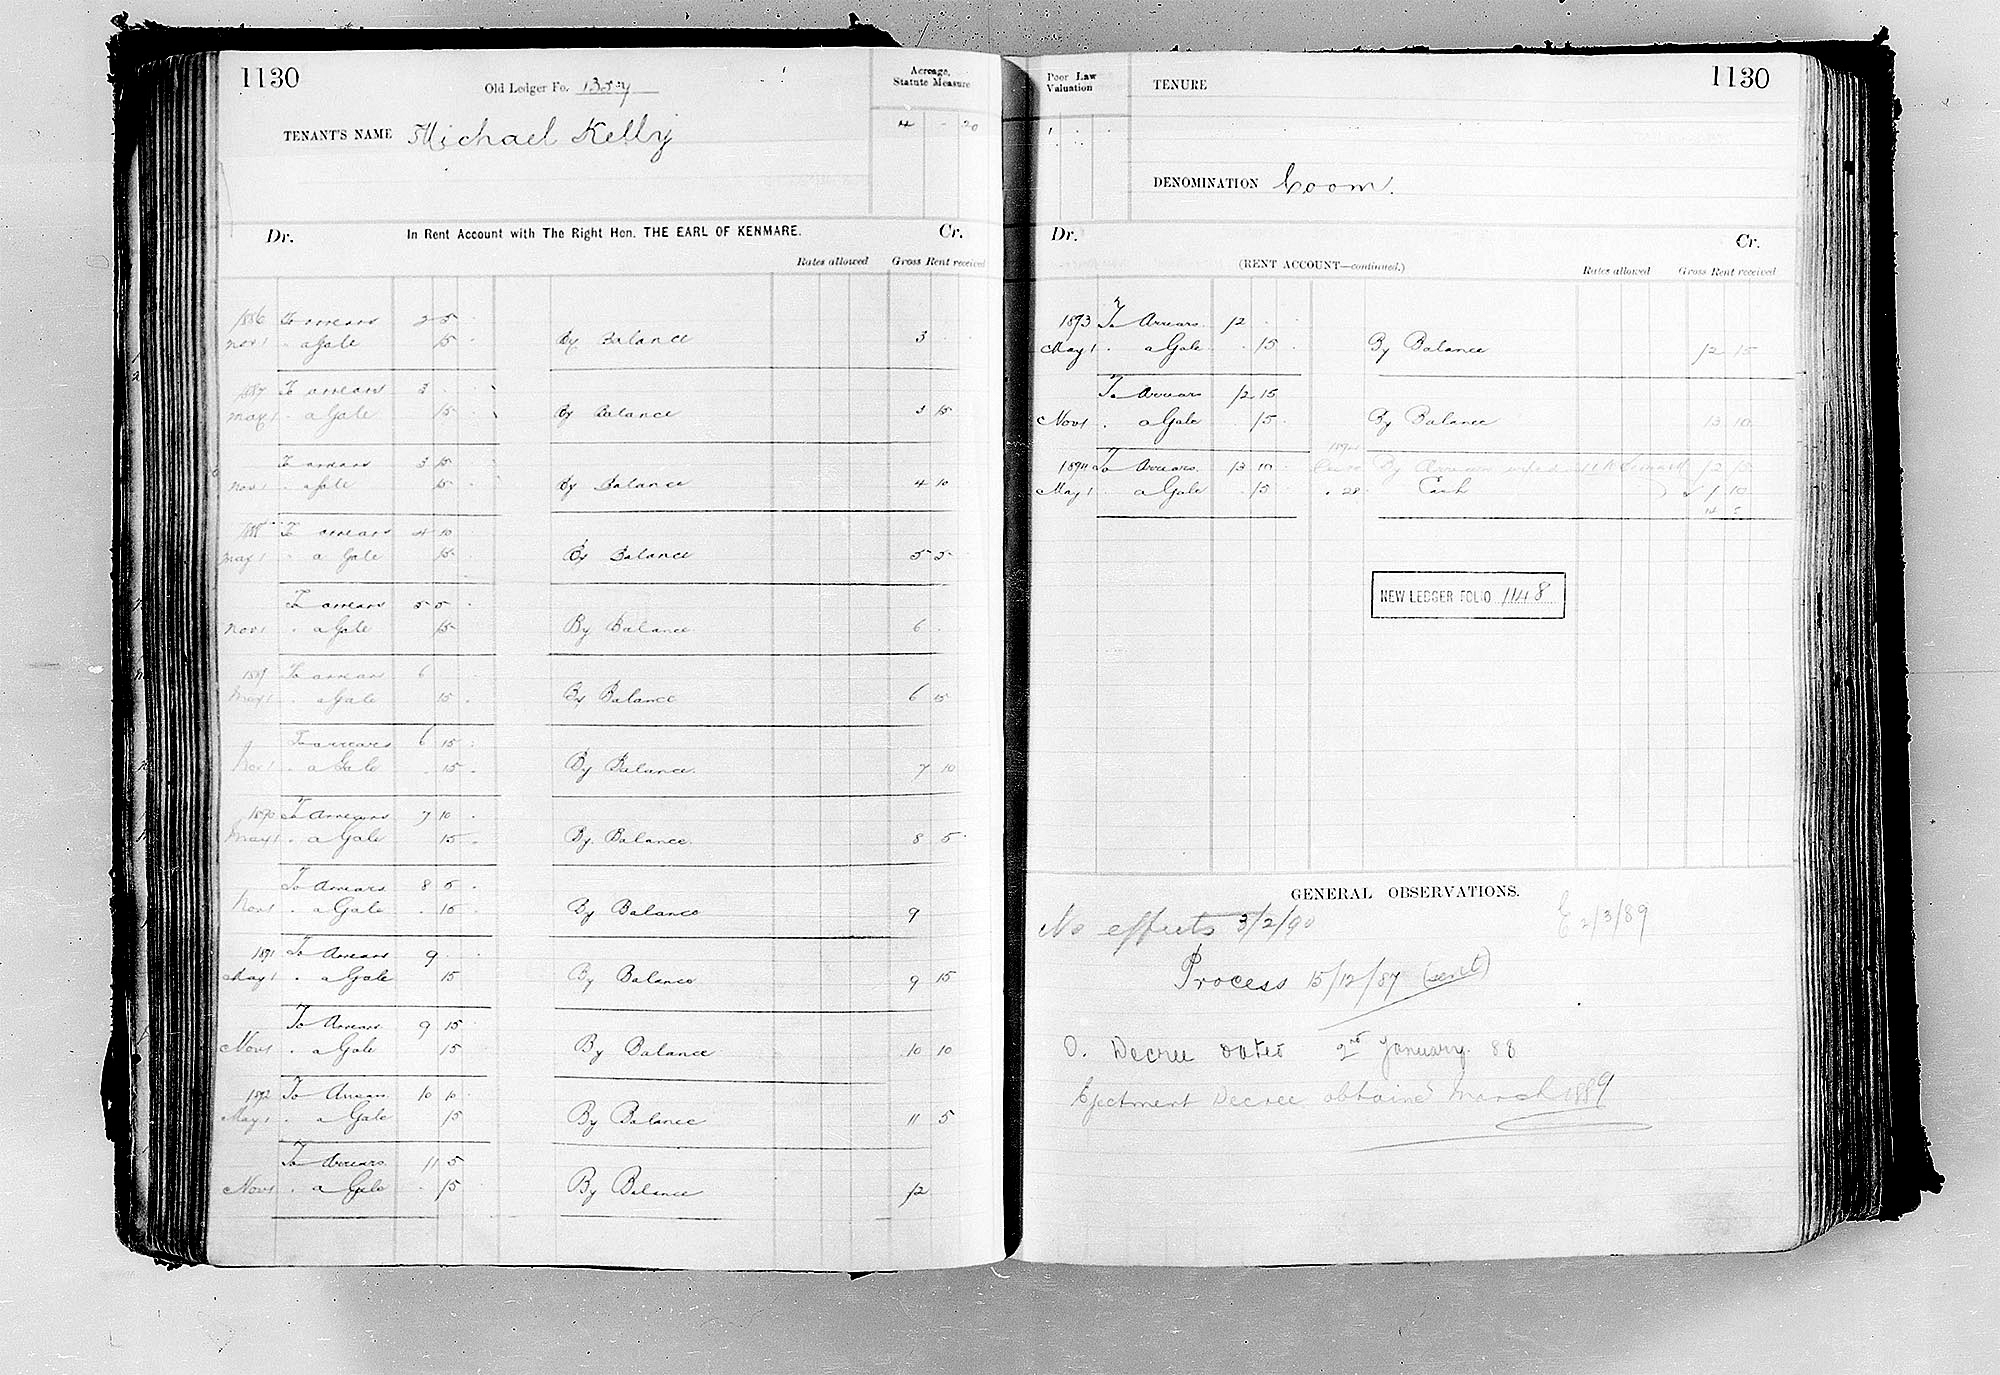 1130
Old Ledger Fo. 1357
Acreage, Statute Measure
TENANT'S NAME Michael Kelly
4 - 20
Dr. In Rent Account with The Right Hon. THE EARL OF KENMARE. Cr.
Rates allowed Gross Rent received
1886 To arrears 2 5
Nov 1 " a Gale 15 By Balance 3
1887 To arrears 3
May 1 " a Gale 15 By Balance 3 15
To arrears 3 15
Nov 1 " a Gale 15 By Balance 4 10
1888 To arrears 4 10
May 1 " a Gale 15 By Balance 5 5
To arrears 5 5
Nov 1 " a Gale 15 By Balance 6
1889 To arrears 6
May 1 " a Gale 15 By Balance 6 15
To arrears 6 15
Nov 1 " a Gale 15 By Balance 7 10
1890 To Arrears 7 10
May 1 " a Gale 15 By Balance 8 5
To Arrears 8 5
Nov 1 " a Gale 15 By Balance 9
1891 To Arrears 9
May 1 " a Gale 15 By Balance 9 15
To Arrears 9 15
Nov 1 " a Gale 15 By Balance 10 10
1892 To Arrears 10 10
May 1 " a Gale 15 By Balance 11 5
To Arrears 11 5
Nov 1 " a Gale 15 By Balance 12
Poor Law Valuation
TENURE
1130
DENOMINATION Coom.
Dr. Cr.
(RENT ACCOUNT—continued.)
Rates allowed Gross Rent received
1893 To Arrears 12
May 1 " a Gale 15 By Balance 12 15
To Arrears 12 15
Nov 1 " a Gale 15 By Balance 13 10
1894
1894 To Arrears 13 10 By 12 15
May 1 " a Gale 15 " 28 Cash 1 10
14 5
NEW LEDGER FOLIO 1148
GENERAL OBSERVATIONS.
No effects 3/2/90 E 2/3/89
Process 15/12/87 (sent)
O. Decree dated 2nd January 88
Ejectment Decree obtained March 1889